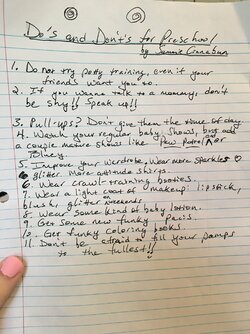 Do's and Dont's for Preschool
by Jammie Canaban
1. Do not try potty training, even if your
friends want you to.
2. If you wanna talk to a mommy, don't
be shy!! Speak up!!
3. Pull-ups? Don't give them the time of day
4. Watch your regular baby shows, but add
a couple mature shows like Paw Patrol or
Bluey.
5. Improve your wardrobe, wear more sparkles ♡
glitter. More attitude shirts.
6. Wear crawl-training booties.
7. Wear a light coat of makeup lipstick,
blush, glitter on weekends.
8. Wear some kind of baby lotion.
9. Get some new funky pacis.
10. Get funky coloring books.
11. Don't be afraid to fill your pamps
to the fullest!!